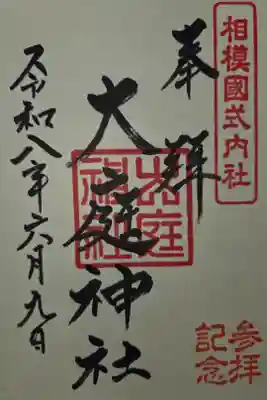 相模國式内社
奉拜
大庭神社
大庭神社
令和八年六月九日
参拝
記念